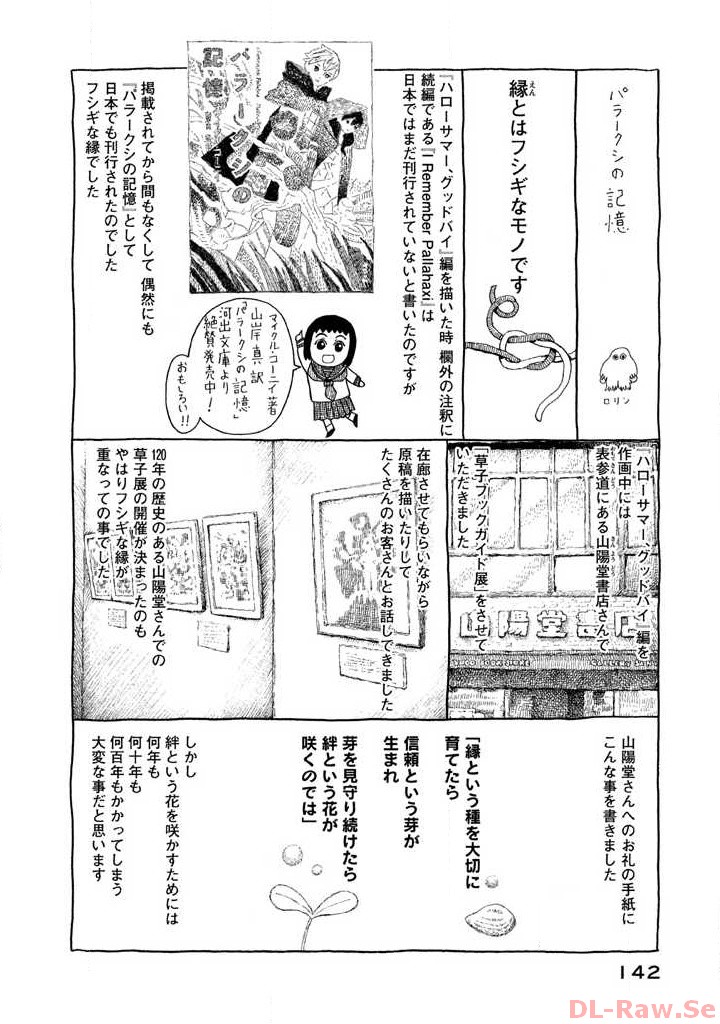 パラークシの記憶
ロリン
縁とはフシギなモノです
えん
『ハローサマー、グッドバイ』編を描いた時 欄外の注釈に
続編である『I Remember Pallahaxi』は
日本ではまだ刊行されていないと書いたのですが
パラークシの
記憶
コーニイ
掲載されてから間もなくして 偶然にも
『パラークシの記憶』として
日本でも刊行されたのでした
フシギな縁でした
マイクル・コーニイ著
山岸真訳
「パラークシの記憶」
河出文庫より
絶賛発売中!
おもしろい!!
『ハローサマー、グッドバイ』編を
作画中には
表参道にある山陽堂書店さんで
「草子ブックガイド展」をさせて
いただきました
山陽堂書店
在廊させてもらいながら
原稿を描いたりして
たくさんのお客さんとお話しできました
120年の歴史のある山陽堂さんでの
草子展の開催が決まったのも
やはりフシギな縁が
重なっての事でした
山陽堂さんへのお礼の手紙に
こんな事を書きました
「縁という種を大切に
育てたら
信頼という芽が
生まれ
芽を見守り続けたら
絆という花が
咲くのでは」
しかし
絆という花を咲かすためには
何年も
何十年も
何百年もかかってしまう
大変な事だと思います
142
DL-Raw.Se